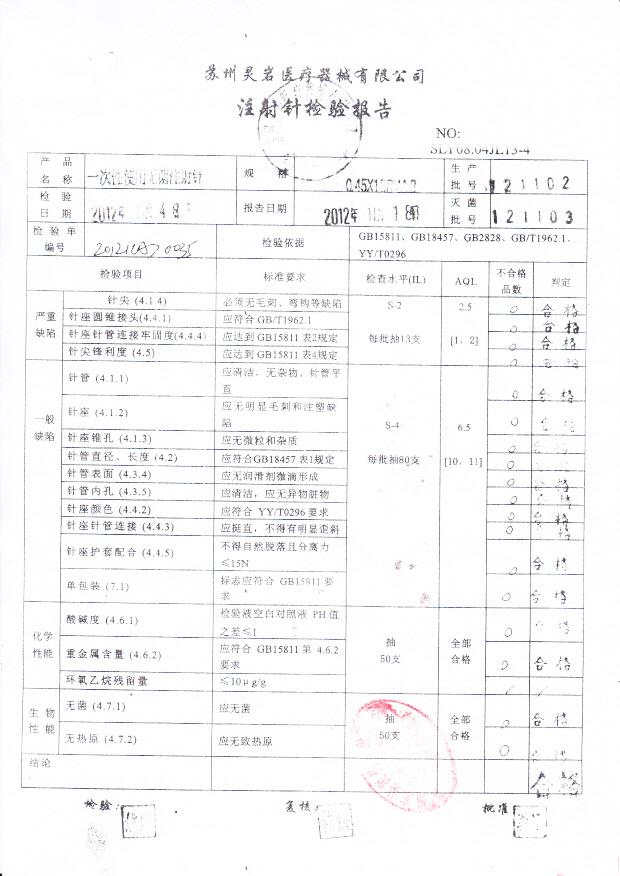 苏州灵岩医疗器械有限公司
注射针检验报告
NO:
SLY08.04JL13-4
产品名称 一次性使用无菌注射针 规格 生产批号 121102
检验日期 报告日期 灭菌批号 121103
检验单编号 检验依据 GB15811、GB18457、GB2828、GB/T1962.1、YY/T0296
检验项目 标准要求 检查水平(IL) AQL 不合格品数 判定
严重缺陷 针尖 (4.1.4) 必须无毛刺、弯钩等缺陷 S-2 2.5 0 合格
针座圆锥接头(4.4.1) 应符合 GB/T1962.1 0 合格
针座针管连接牢固度(4.4.4) 应达到 GB15811 表2规定 每批抽13支 [1, 2] 0 合格
针尖锋利度 (4.5) 应达到 GB15811 表4规定 0
一般缺陷 针管 (4.1.1) 应清洁、无杂物、针管平直 0 合格
针座 (4.1.2) 应无明显毛刺和注塑缺陷 S-4 6.5 0
针座锥孔 (4.1.3) 应无微粒和杂质 0
针管直径、长度 (4.2) 应符合GB18457 表1规定 每批抽80支 [10, 11] 0
针管表面 (4.3.4) 应无润滑剂微滴形成 0
针管内孔 (4.3.5) 应清洁，应无异物脏物 0
针座颜色 (4.4.2) 应符合 YY/T0296 要求 0 合格
针座针管连接 (4.4.3) 应挺直，不得有明显歪斜 0 格
针座护套配合 (4.4.5) 不得自然脱落且分离力≤15N 0 合格
单包装 (7.1) 标志应符合 GB15811 要求 0 合格
化学性能 酸碱度 (4.6.1) 检验液空白对照液 PH 值之差≤1 抽50支 全部合格 0
重金属含量 (4.6.2) 应符合 GB15811 第 4.6.2 要求 0 合格
环氧乙烷残留量 ≤10μg/g
生物性能 无菌 (4.7.1) 应无菌 抽50支 全部合格 0 合格
无热原 (4.7.2) 应无致热原 0
结论 合格
检验: 复核: 批准: